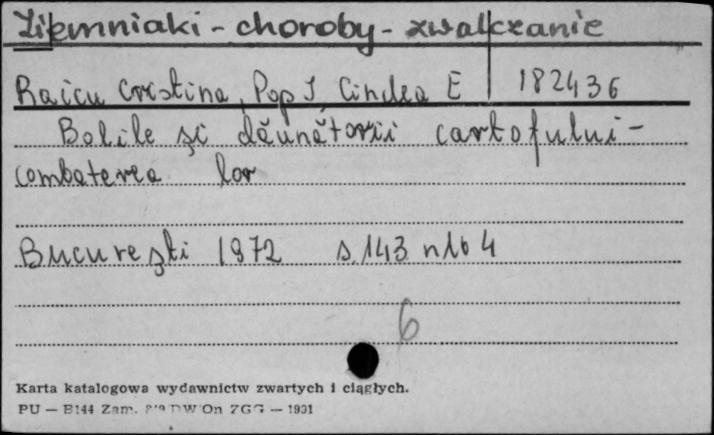 Ziemniaki - choroby - zwalczanie
Raicu Cristina, Pop I, Cindea E 182436
Bolile şi dăunătorii cartofului -
combaterea lor
Bucureşti 1972 s. 143 nlb 4
6
Karta katalogowa wydawnictw zwartych i ciągłych.
PU — B144 Zam. DW On ZGG — 1991